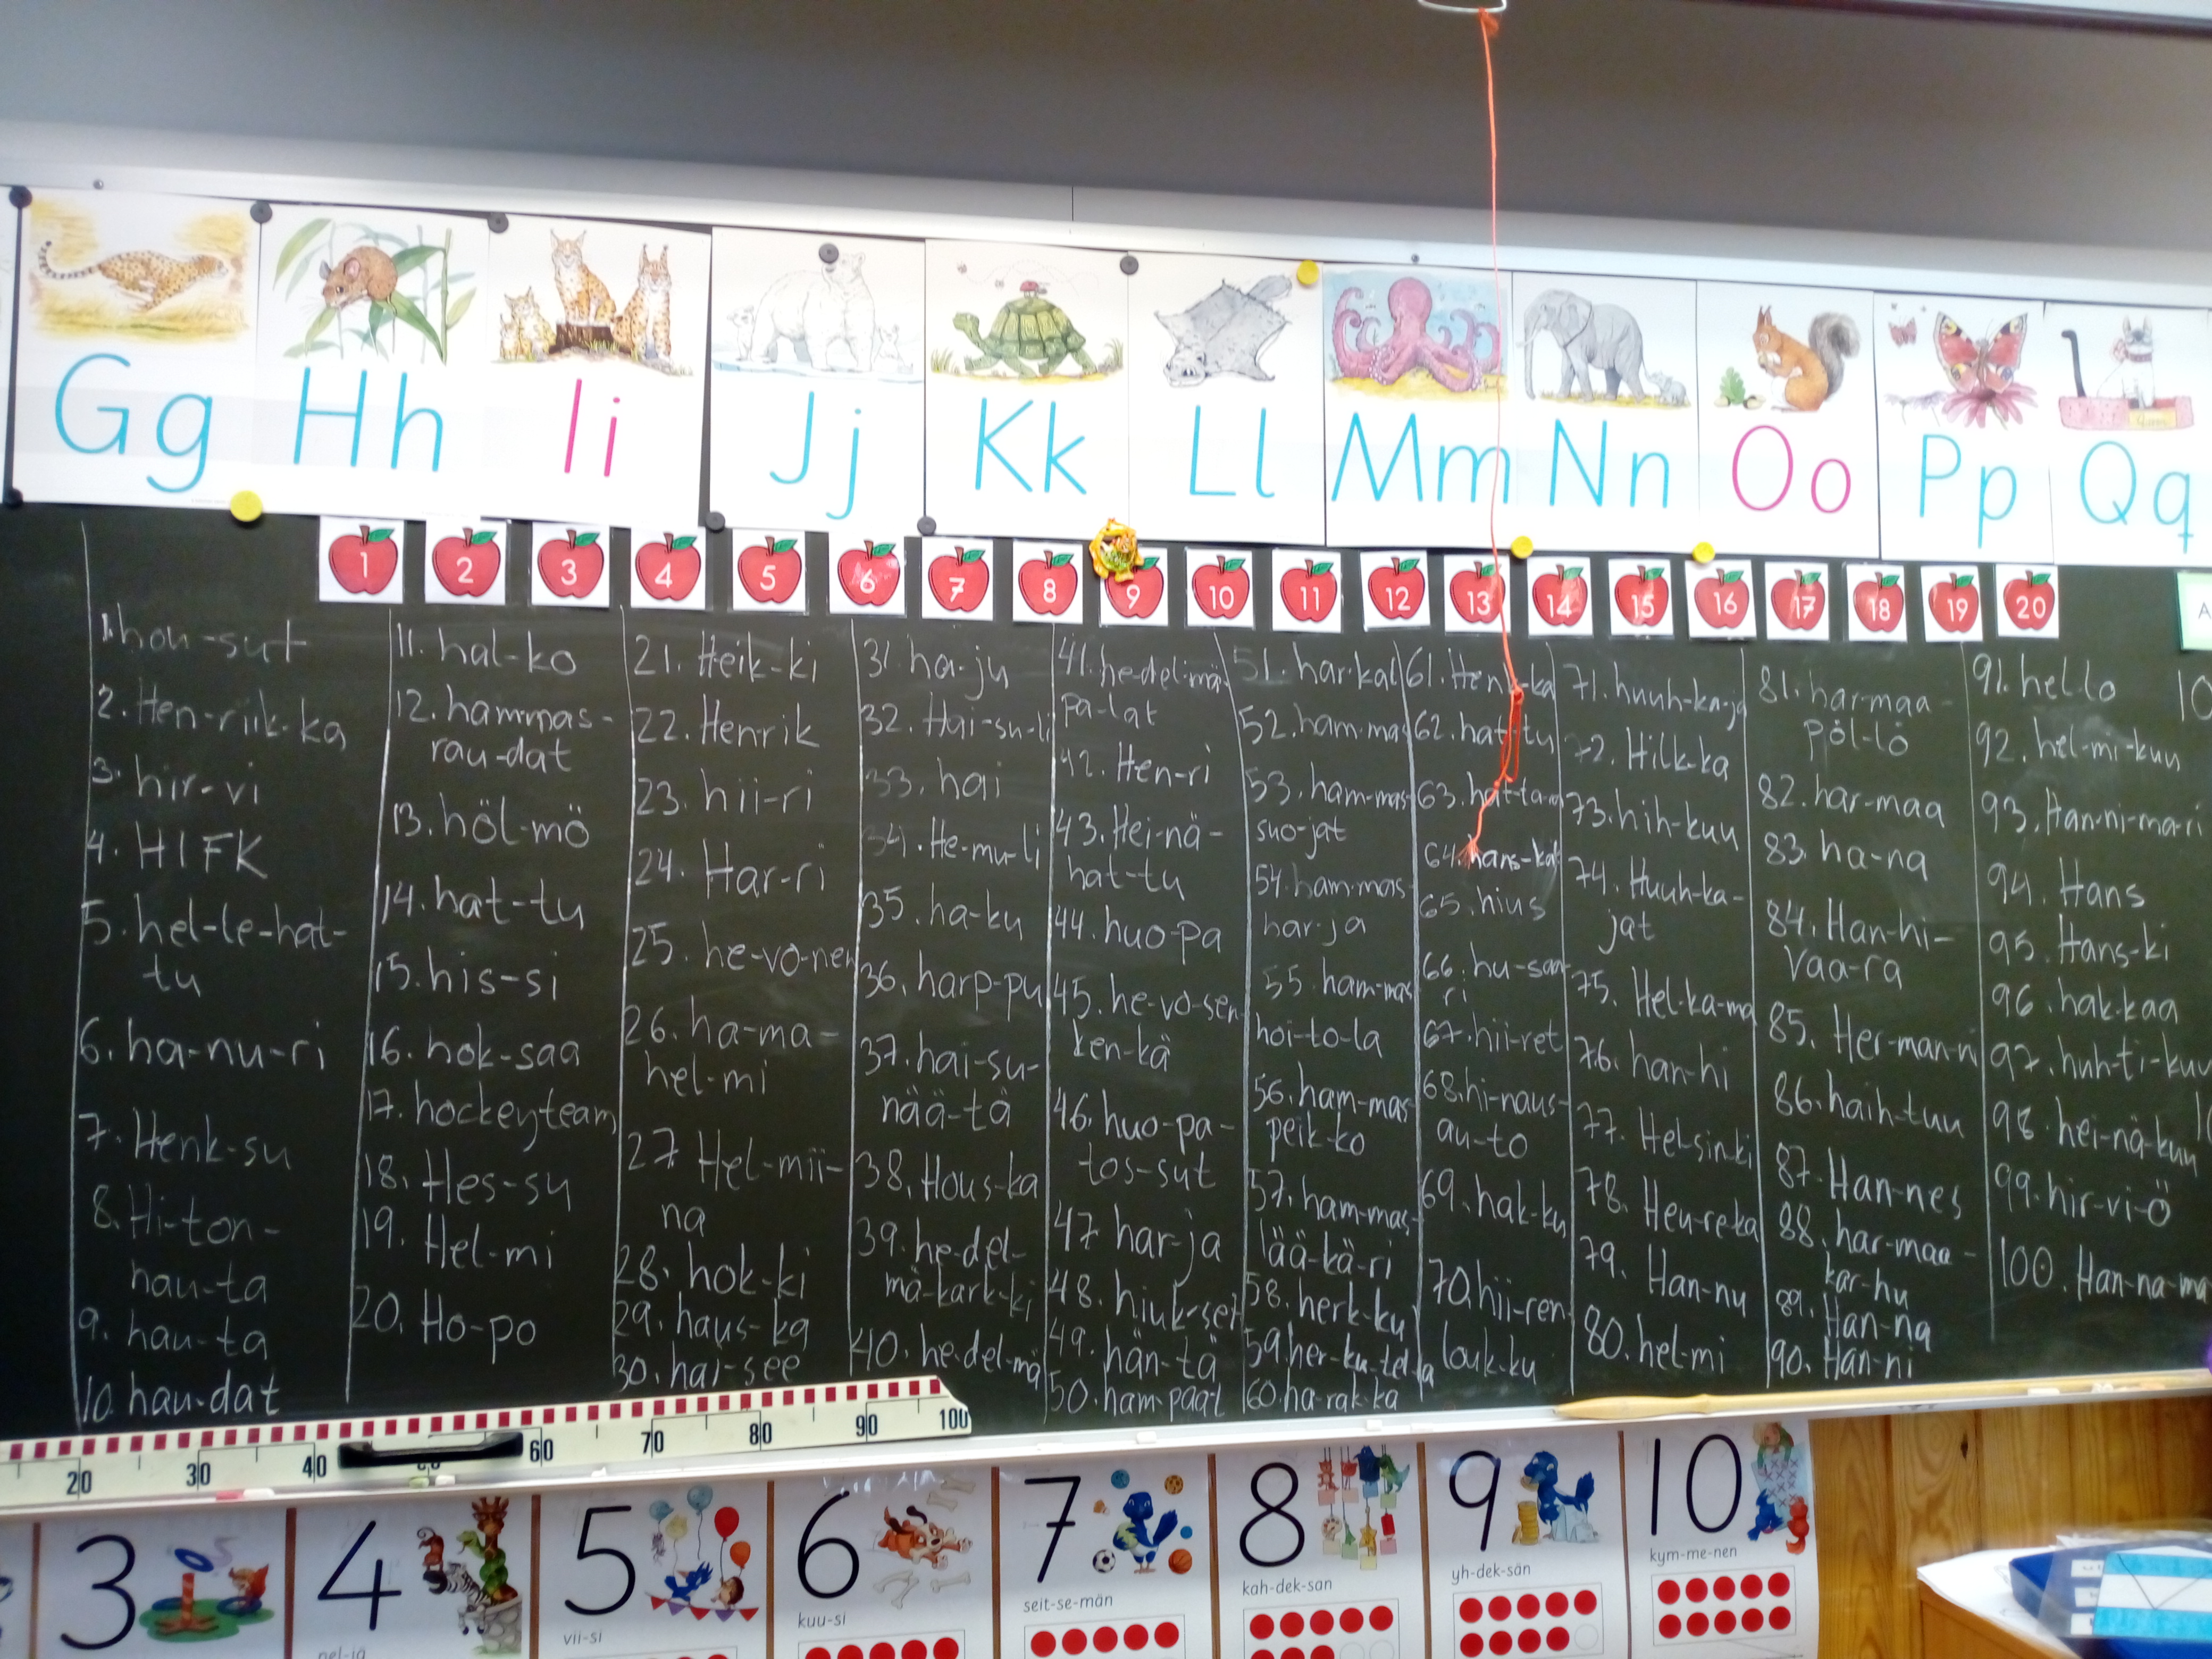 Gg Hh Ii Jj Kk Ll Mm Nn Oo Pp Qq
1 2 3 4 5 6 7 8 9 10 11 12 13 14 15 16 17 18 19 20
A
1. hou-sut
2. Hen-riik-ka
3. hir-vi
4. HIFK
5. hel-le-hat-
tu
6. ha-nu-ri
7. Henk-su
8. Hi-ton-
hau-ta
9. hau-ta
10. hau-dat
11. hal-ko
12. hammas-
rau-dat
13. höl-mö
14. hat-tu
15. his-si
16. hok-saa
17. hockeyteam
18. Hes-su
19. Hel-mi
20. Ho-po
21. Heik-ki
22. Henrik
23. hii-ri
24. Har-ri
25. he-vo-nen
26. ha-ma-
hel-mi
27 Hel-mii-
na
28. hok-ki
29. haus-ka
30. hai-see
31. ha-ju
32. Hai-su-li
33. hai
34. He-mu-li
35. ha-ku
36. harp-pu
37. hai-su-
nää-tä
38. Hous-ka
39. he-del-
mä-kark-ki
40. he-del-mä
41. he-del-mä-
pa-lat
42. Hen-ri
43. Hei-nä-
hat-tu
44. huo-pa
45. he-vo-sen
ken-kä
46. huo-pa-
tos-sut
47 har-ja
48. hiuk-set
49. hän-tä
50. ham-paat
51. har-kal
52. ham-mas
53. ham-mas-
suo-jat
54. ham-mas-
har-ja
55. ham-mas
hoi-to-la
56. ham-mas
peik-ko
57. ham-mas-
lää-kä-ri
58. herk-ku
59. her-ku-tel-la
60. ha-rak-ka
61.
62. hat-tu
63.
64. hans-kat
65. hius
66. hu-saa-
ri
67. hii-ret
68. hi-naus-
au-to
69. hak-ku
70. hii-ren-
louk-ku
71. huuh-ka-ja
72. Hilk-ka
73. hih-kuu
74. Huuh-ka-
jat
75. Hel-ka-ma
76. han-hi
77. Hel-sinki
78. Heu-reka
79. Han-nu
80. hel-mi
81. har-maa-
pöl-lö
82. har-maa
83. ha-na
84. Han-hi-
vaa-ra
85. Her-man-ni
86. haih-tuu
87. Han-nes
88. har-maa-
kar-hu
89. Han-na
90. Han-ni
91. hel-lo
92. hel-mi-kuu
93. Han-ni-ma-ri
94. Hans
95. Hans-ki
96. hak-kaa
97. huh-ti-kuu
98. hei-nä-kuu
99. hir-vi-ö
100. Han-na-ma
20 30 40 60 70 80 90 100
3
4
nel-jä
5
vii-si
6
kuu-si
7
seit-se-män
8
kah-dek-san
9
yh-dek-sän
10
kym-me-nen